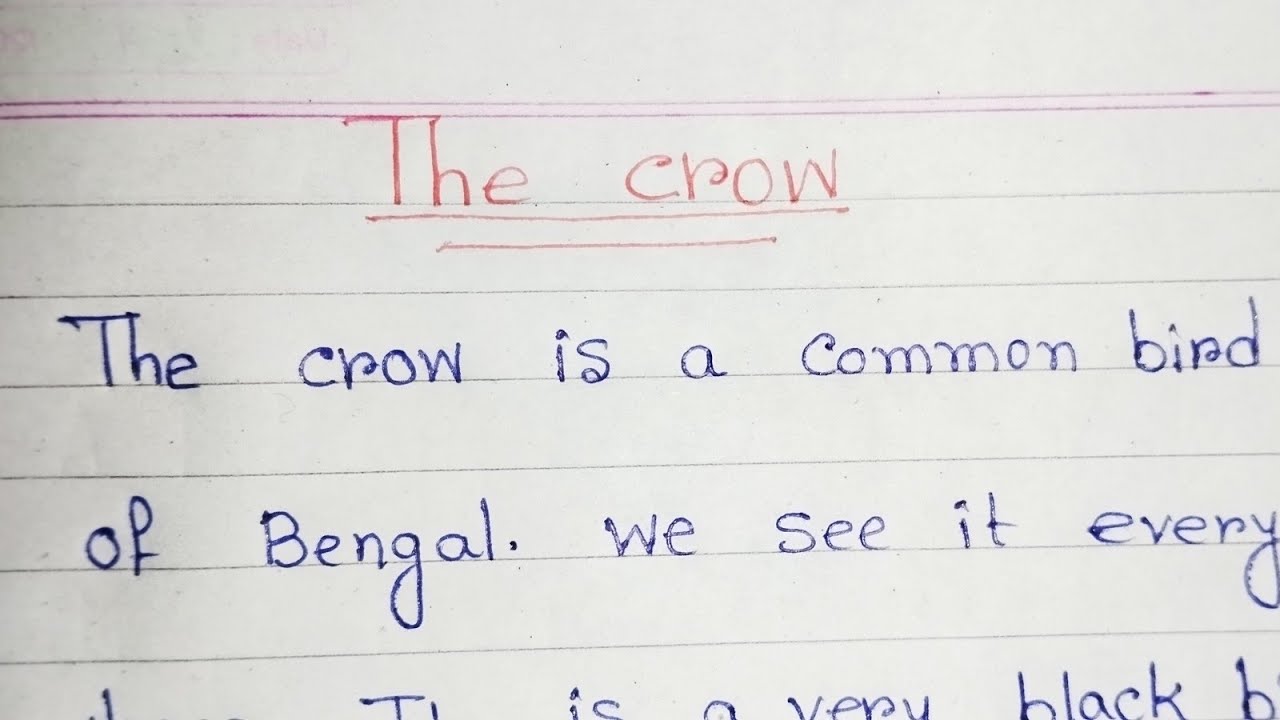 The crow
The crow is a common bird
of Bengal. We see it every
is a very black